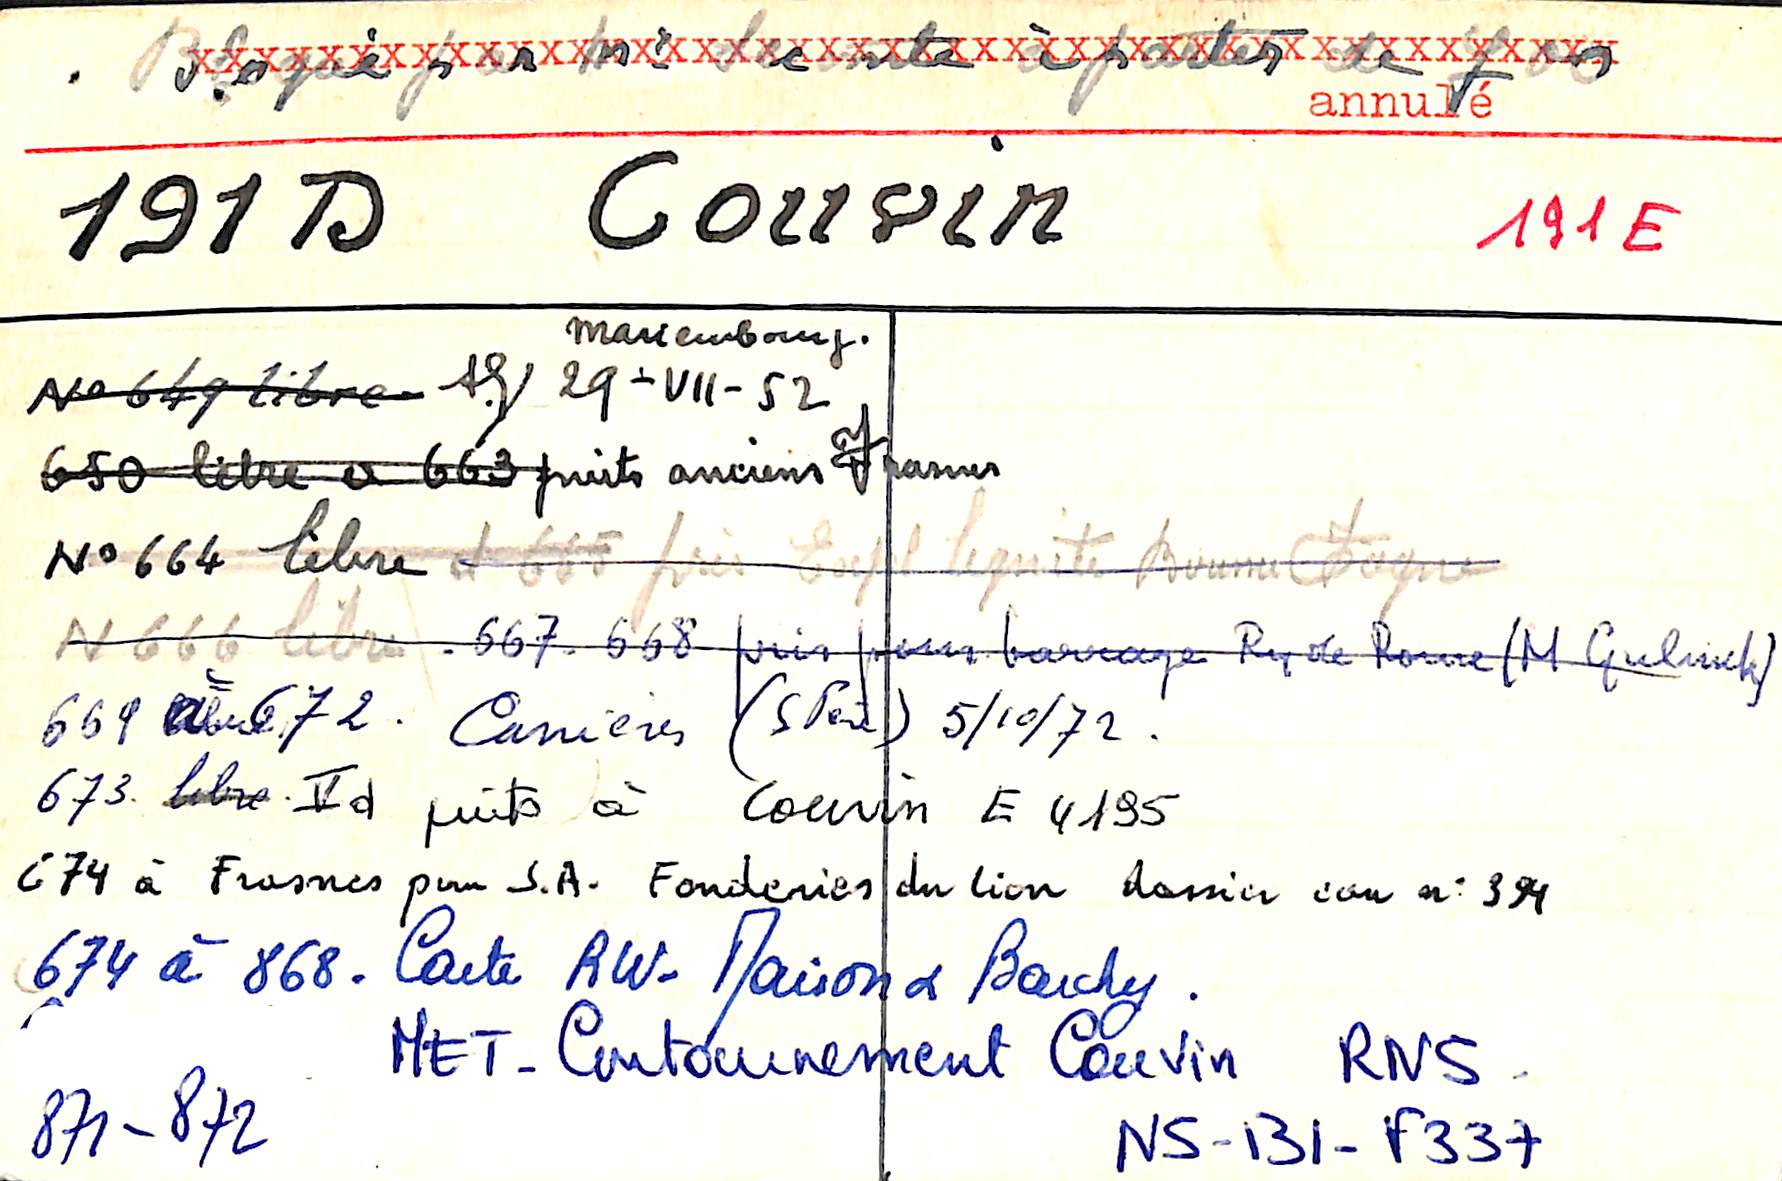 Bloqué par Mr Lecomte à partir de
annulé
191 D Couvin 191 E
Mariembourg.
N° 649 libre 29-VII-52
650 libre à 663 puits anciens Frasnes
N° 664 libre et 665 pris Expl lignite
N 666 libre 667. 668 pris pour barrage Ry de Rome (M Gulinck)
669 à 672. Carrières 5/10/72.
673 libre. Vd puits à Couvin E 4195
674 à Frasnes pour S.A. Fonderies du Lion dossier eau n° 394
674 à 868. Carte RW- Marion & Barchy.
MET - Contournement Couvin RN5.
871-872
N5-131-F337